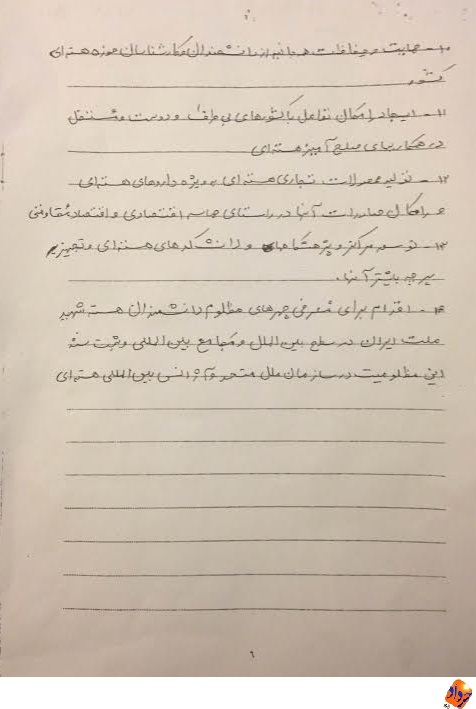 ۱۰- حمایت و حفاظت همه جانبه از دانشمندان و کارشناسان حوزه هسته ای
کشور
۱۱- ایجاد امکان تعامل با کشورهای بی طرف و دوست و مستقل
در همکاریهای صلح آمیز هسته ای
۱۲- تولید محصولات تجاری هسته ای به ویژه داروهای هسته ای
و امکان صادرات آنها در راستای حماسه اقتصادی و اقتصاد مقاومتی
۱۳- توسعه مراکز و پژوهشگاههای و دانشکده های هسته ای و تجهیز
هر چه بیشتر آنها.
۱۴- اقدام برای معرفی چهره های مظلوم دانشمندان هسته شهید
ملت ایران در سطح بین الملل و مجامع بین المللی و ثبت سند
این مظلومیت در سازمان ملل متحد و آژانس بین المللی هسته ای
۶